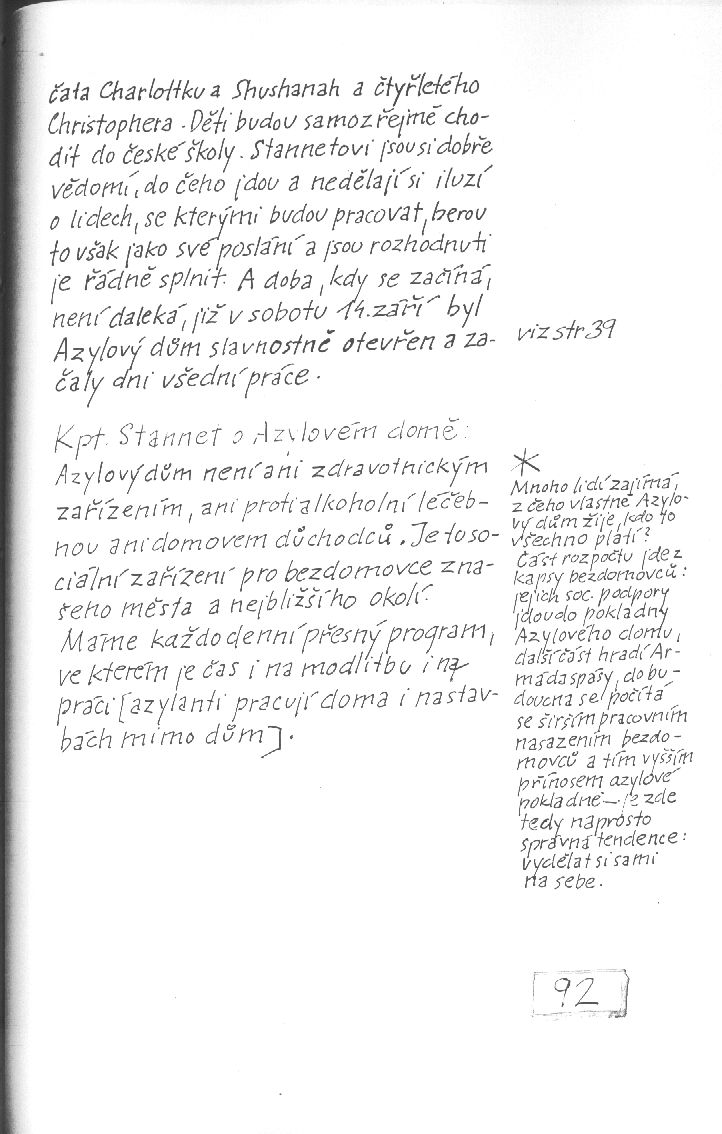 čata Charlottku a Shushanah a čtyřletého
Christophera. Děti budou samozřejmě cho-
dit do české školy. Stannetovi jsou si dobře
vědomi, do čeho jdou a nedělají si iluzí
o lidech, se kterými budou pracovat, berou
to však jako své poslání a jsou rozhodnuti
je řádně splnit. A doba, kdy se začíná,
není daleká, již v sobotu 14. září byl
Azylový dům slavnostně otevřen a za-
čaly dni všední práce.
viz str 39
Kpt. Stannet o Azylovém domě:
Azylový dům není ani zdravotnickým
zařízením, ani protialkoholní léčeb-
nou ani domovem důchodců. Je to so-
ciální zařízení pro bezdomovce zna-
šeho města a nejbližšího okolí.
Máme každodenní přesný program,
ve kterém je čas i na modlitbu i na
práci [azylanti pracují doma i na stav-
bách mimo dům].
*
Mnoho lidí zajímá,
z čeho vlastně Azylo-
vý dům žije, kdo to
všechno platí?
Část rozpočtu jde z
kapsy bezdomovců:
jejich soc. podpory
jdou do pokladny
Azylového domu,
další část hradí Ar-
máda spásy, do bu-
doucna se počítá
se širším pracovním
nasazením bezdo-
movců a tím vyšším
přínosem azylové
pokladně — je zde
tedy naprosto
správná tendence:
vydělat si sami
na sebe.
92